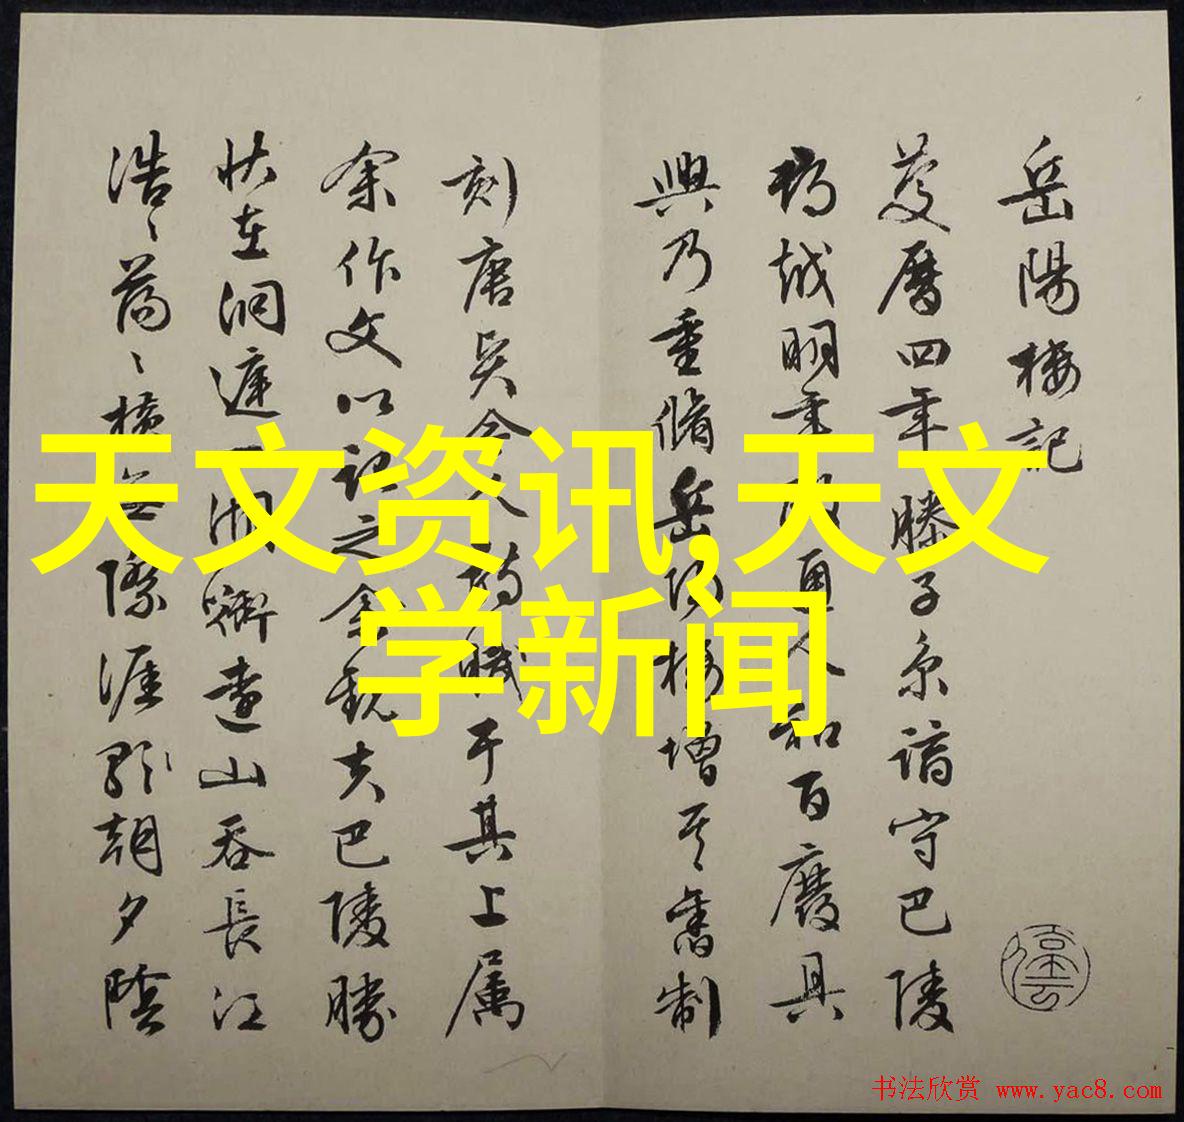 岳陽樓記
慶曆四年滕子京謫守巴陵
郡越明年政通人和百廢具
興乃重脩岳陽樓增其舊制
刻唐賢今人詩賦于其上屬
余作文以記之余觀夫巴陵勝
狀在洞庭一湖銜遠山吞長江
浩〻蕩〻橫無際涯朝夕陰
天文资讯,天文
学新闻
书法欣赏 www.yac8.com